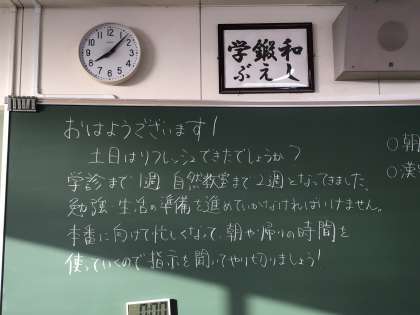 和 鍛 学
人 え ぶ
おはようございます!
土日はリフレッシュできたでしょうか?
学診まで1週 自然教室まで2週となってきました。
勉強 生活の準備を進めていかなければいけません。
本番に向けて忙しくなって、朝や帰りの時間を
使っていくので指示を聞いてやり切りましょう!
○朝
○漢